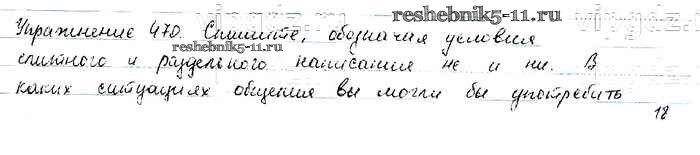 reshebnik5-11.ru
Упражнение 470. Спишите, обозначая условия
reshebnik5-11.ru
слитного и раздельного написания не и ни. В
каких ситуациях общения вы могли бы употребить
18